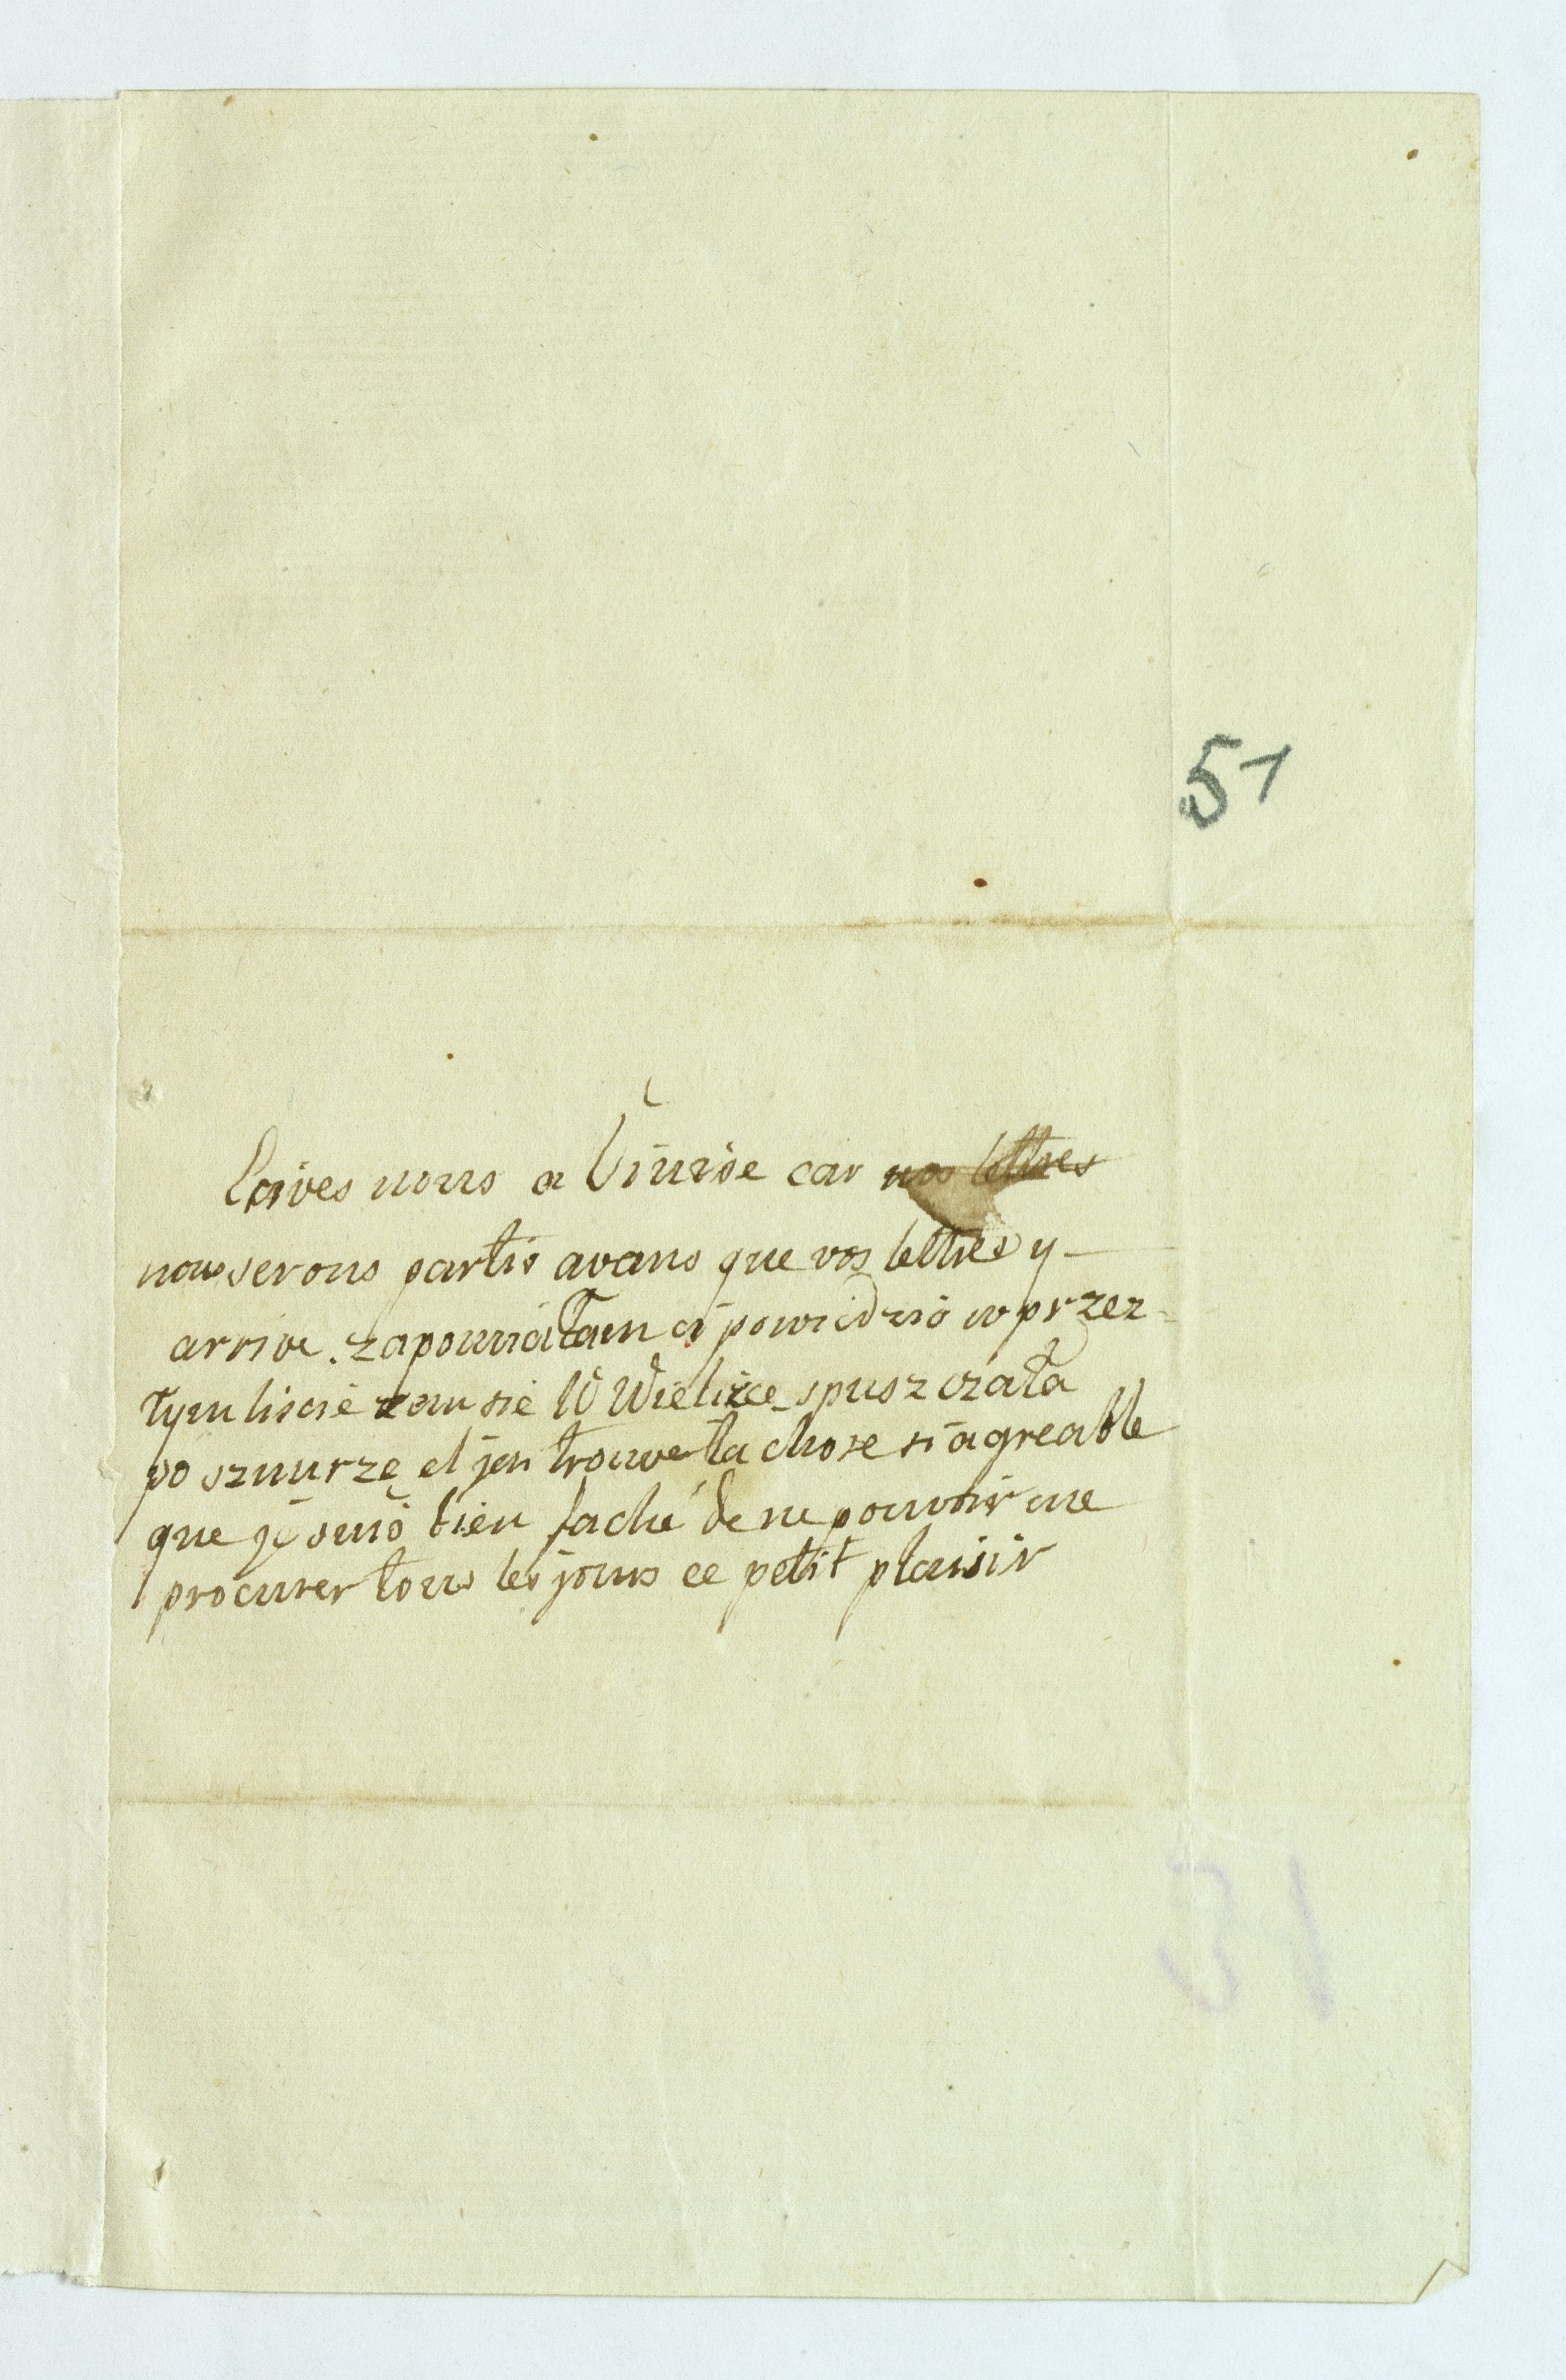 51
Ecives nous a Viinise car nos lettres
nous serons partis avans que vos lettres y
arrive. zapomniałam ci powiedzić w przez=
tym liscie zem sie W Wielizce spuszczała
po sznurze et jen trouve la chose si agreable
que je suis bien faché de ne pouvoir me
procurer tous les jours ce petit plaisir